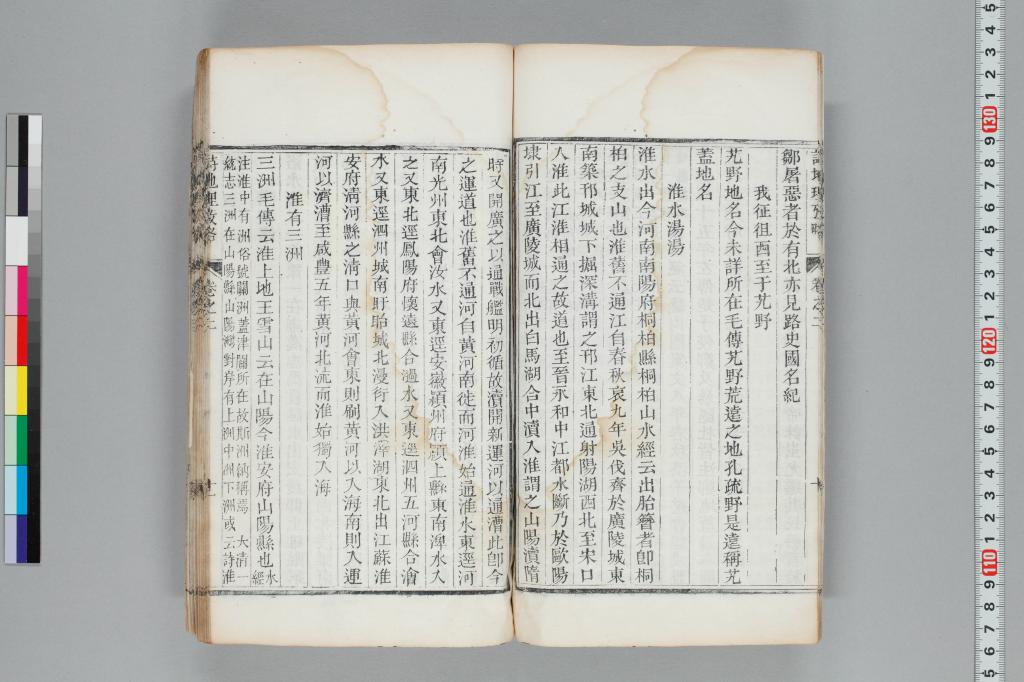 鄒屠惡者於有北亦見路史國名紀
我征徂酉至于艽野
艽野地名今未詳所在毛傳艽野荒遠之地孔疏野是遠稱艽
蓋地名
淮水湯湯
淮水出今河南南陽府桐柏縣桐柏山水經云出胎簪者卽桐
柏之支山也淮舊不通江自春秋哀九年吳伐齊於廣陵城東
南築邗城城下掘深溝謂之邗江東北通射陽湖西北至宋口
入淮此江淮相通之故道也至晉永和中江都水斷乃於歐陽
埭引江至廣陵城而北出白馬湖合中瀆入淮謂之山陽瀆隋
時又開廣之以通戰艦明初循故瀆開新運河以通漕此卽今
之運道也淮舊不通河自黃河南徙而河淮始通淮水東逕河
南光州東北會汝水又東逕安徽潁州府潁上縣東南淠水入
之又東北逕鳳陽府懷遠縣合渦水又東逕泗州五河縣合澮
水又東逕泗州城南盱眙城北漫衍入洪澤湖東北出江蘇淮
安府清河縣之清口與黃河會東則刷黃河以入海南則入運
河以濟漕至咸豐五年黃河北流而淮始獨入海
淮有三洲
三洲毛傳云淮上地王雪山云在山陽今淮安府山陽縣也水經
注淮中有洲俗號關洲蓋津關所在故斯洲納稱焉 大清一
統志三洲在山陽縣山陽灣對岸有上洲中洲下洲或云詩淮
詩地理攷略 卷之二 十一